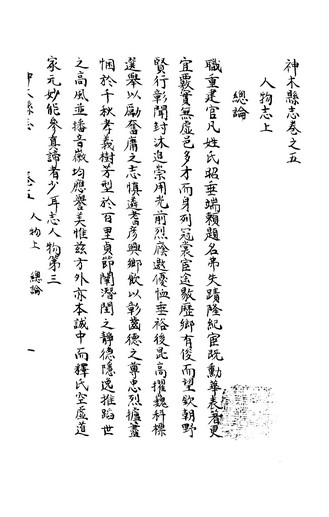 神木縣志卷之五
人物志上
總論
職重建官凡姓氏昭垂端賴題名弗失蹟隆紀宦旣勳華表著更
宜覈實無虛邑多才而身列冠裳宦途歇歷鄉有俊而望欽朝野
賢行彰聞封沐追崇用光前烈廢邀優恤垂裕後昆高擢巍科標
選舉以勵奮庸之志慎遴耆彥興鄉飲以彰齒德之尊忠烈攄蓋
悃於千秋孝義樹芳型於百里貞節闡潛閨之靜德隱逸推蹈世
之高風並播音徽均應譽美惟茲方外亦本誠中而釋氏空虛道
家元妙能參真諦者少耳志人物第三
神木縣志
卷五
人物上
總論
一